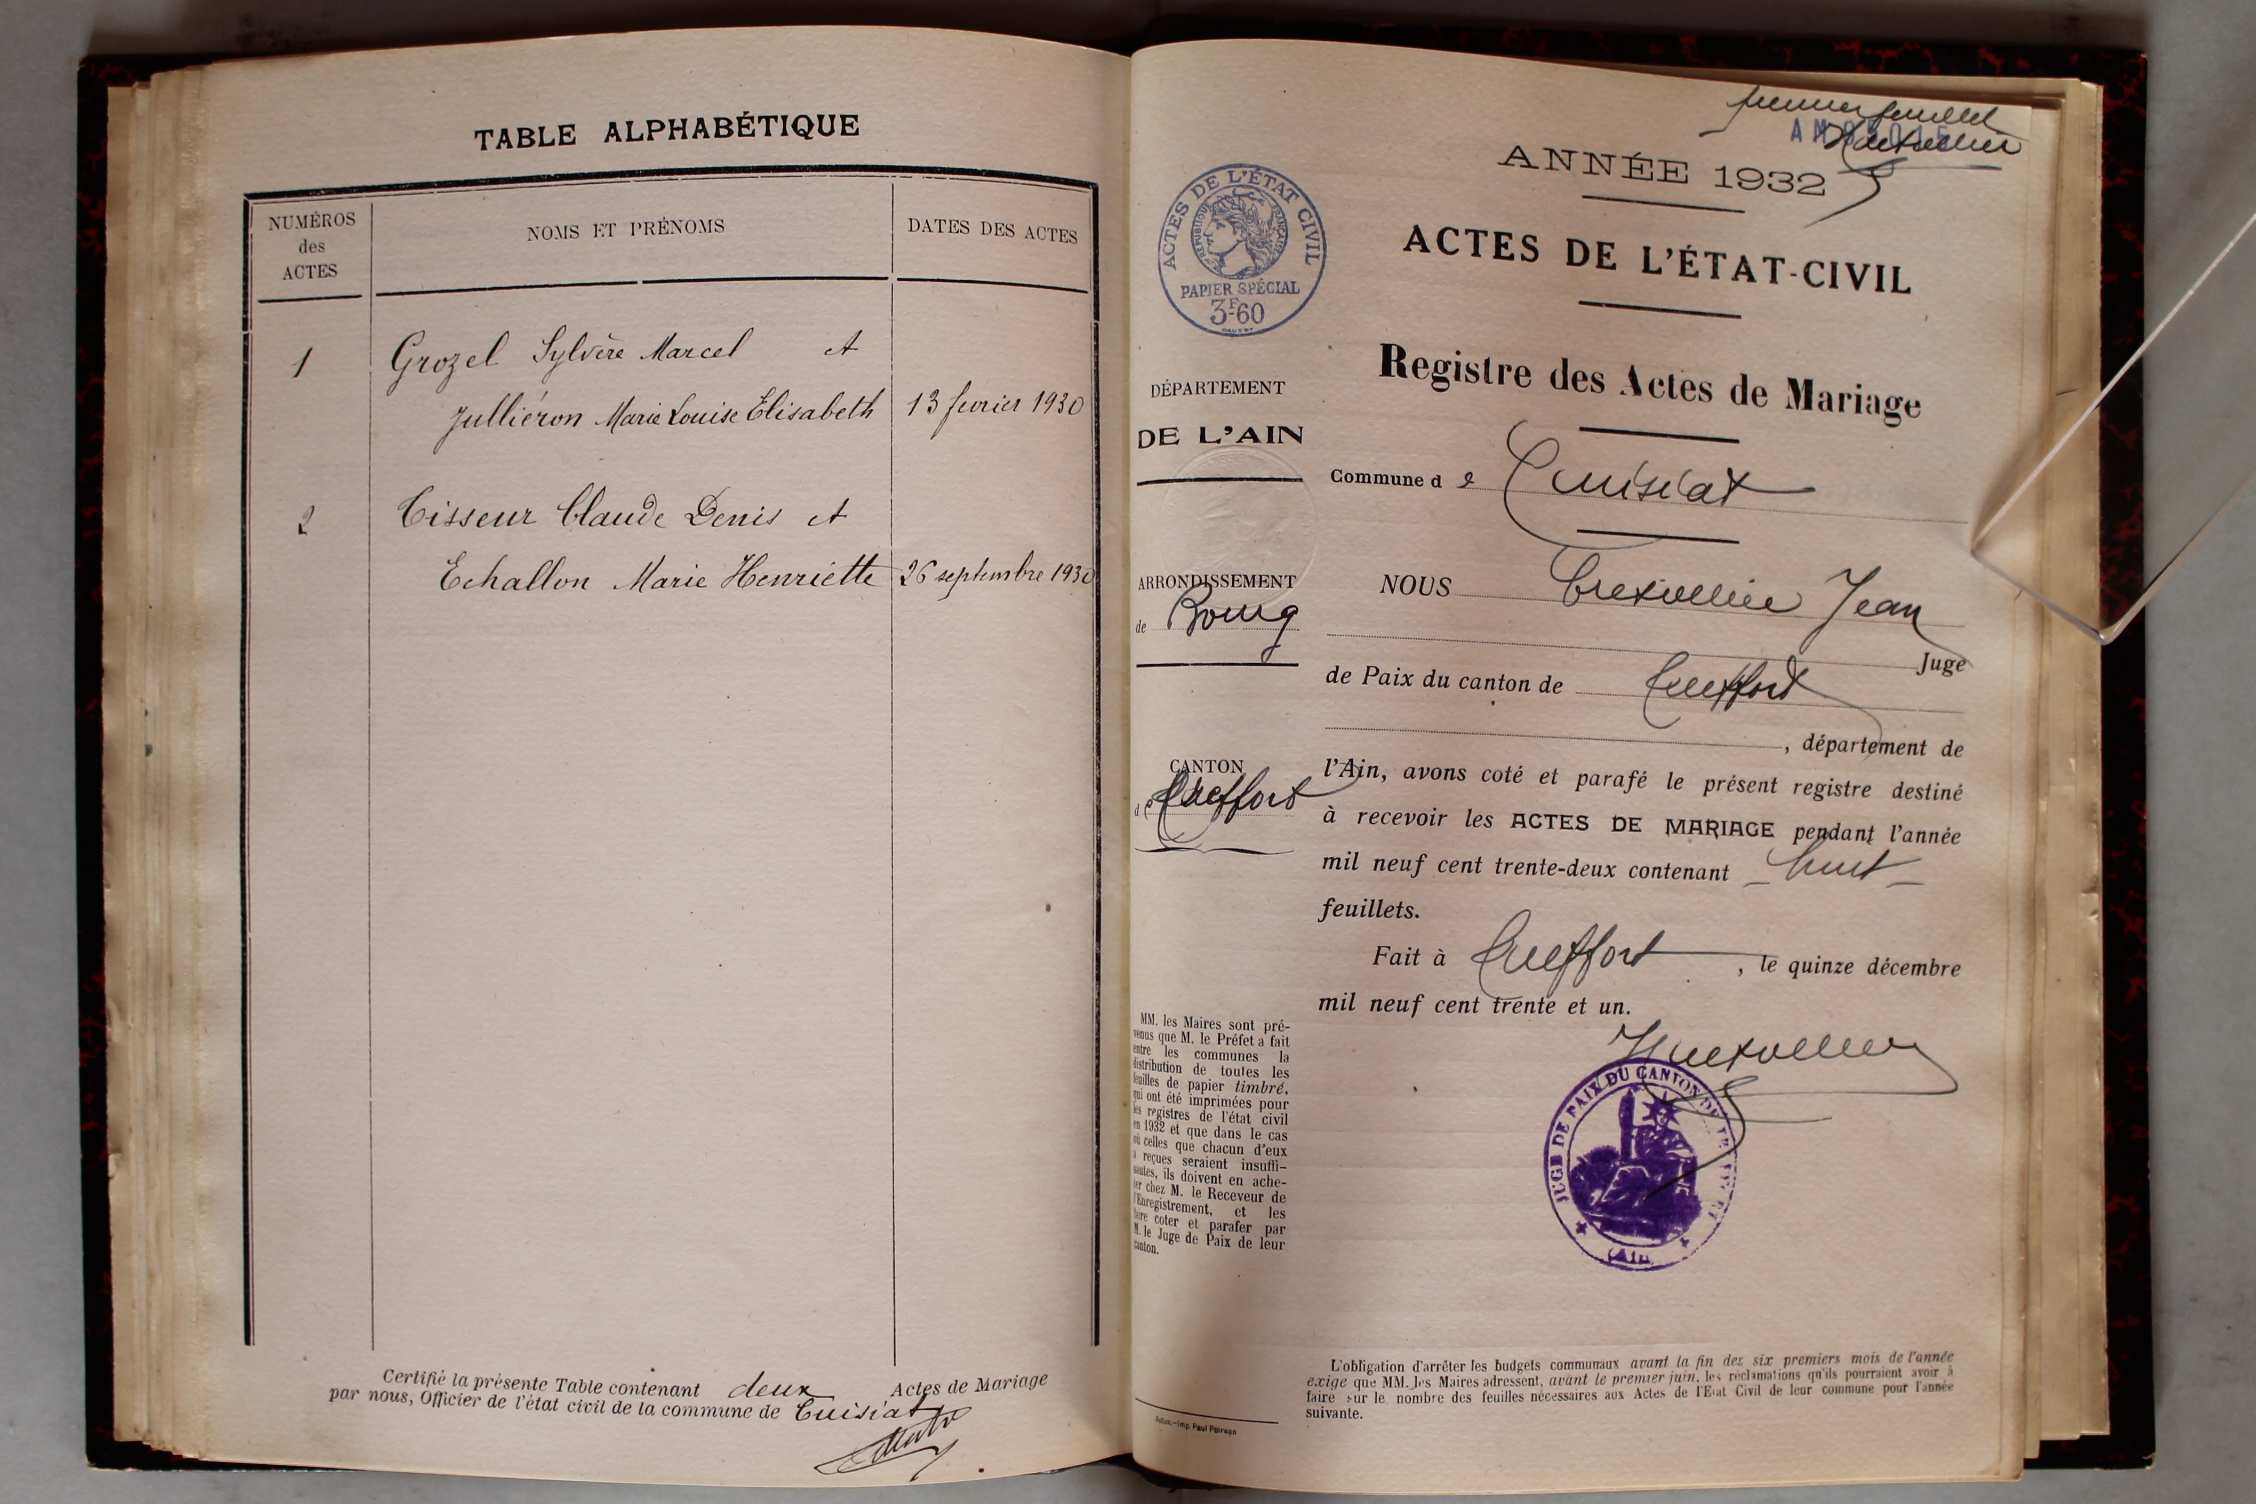 TABLE ALPHABÉTIQUE
NUMÉROS
des
ACTES
NOMS ET PRÉNOMS
DATES DES ACTES
1 Grozel Sylvère Marcel et
Julliéron Marie Louise Elisabeth 13 fevrier 1930
2 Tisseur Claude Denis et
Echallon Marie Henriette 26 septembre 1930
Certifié la présente Table contenant deux Actes de Mariage
par nous, Officier de l'état civil de la commune de Cuisiat
premier feuillet
ANNÉE 1932
ACTES DE L'ÉTAT CIVIL
RÉPUBLIQUE FRANÇAISE
PAPIER SPÉCIAL
3F60
ACTES DE L'ÉTAT-CIVIL
Registre des Actes de Mariage
DÉPARTEMENT
DE L'AIN
Commune de Cuisiat
ARRONDISSEMENT
de Bourg
NOUS Jean
Juge
de Paix du canton de Treffort
, département de
CANTON
de Treffort
l'Ain, avons coté et parafé le présent registre destiné
à recevoir les ACTES DE MARIAGE pendant l'année
mil neuf cent trente-deux contenant - huit -
feuillets.
Fait à Treffort, le quinze décembre
mil neuf cent trente et un.
MM. les Maires sont pré-
venus que M. le Préfet a fait
entre les communes la
distribution de toutes les
feuilles de papier timbré,
qui ont été imprimées pour
les registres de l'état civil
en 1932 et que dans le cas
où celles que chacun d'eux
a reçues seraient insuffi-
santes, ils doivent en ache-
ter chez M. le Receveur de
l'Enregistrement, et les
faire coter et parafer par
M. le Juge de Paix de leur
canton.
JUGE DE PAIX DU CANTON DE TREFFORT
(AIN)
L'obligation d'arrêter les budgets communaux avant la fin des six premiers mois de l'année
exige que MM. les Maires adressent, avant le premier juin, les réclamations qu'ils pourraient avoir à
faire sur le nombre des feuilles nécessaires aux Actes de l'Etat Civil de leur commune pour l'année
suivante.